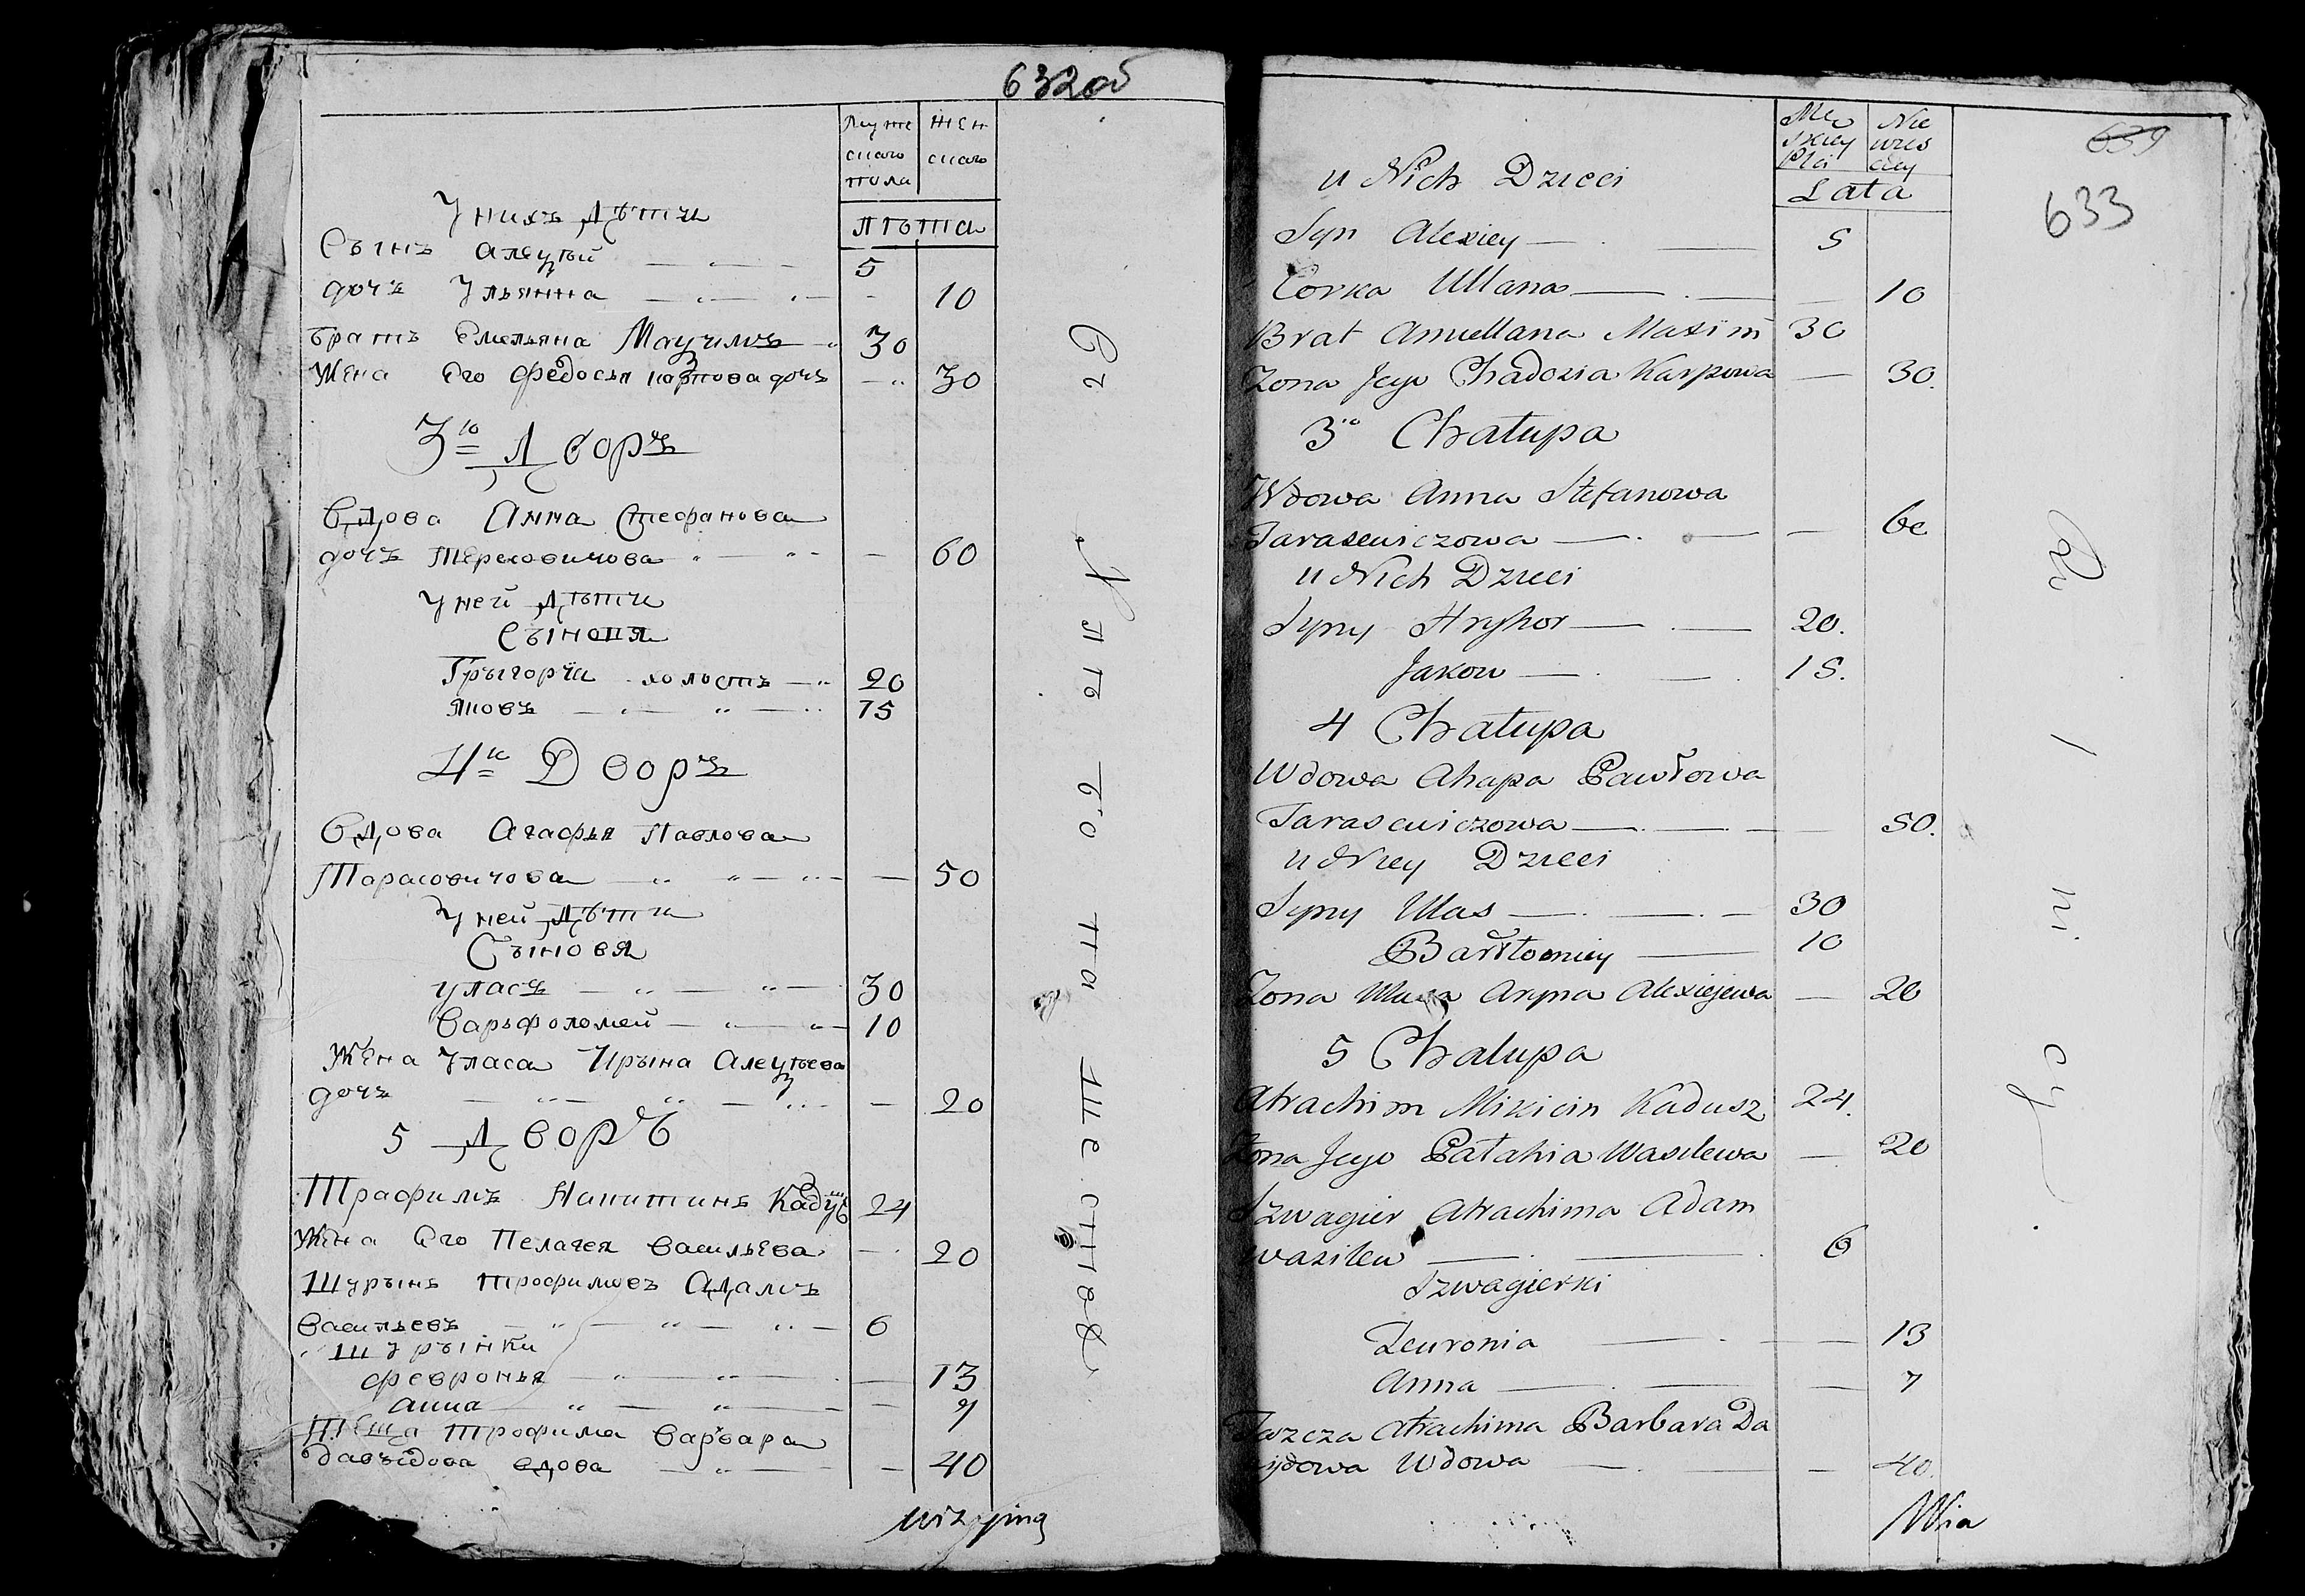 632об
Муже
скаго
пола
жен
скаго
лѣта
У нихъ дѣти
Сынъ Алеѯѣй 5
дочъ Ульянна 10
братъ Емельяна Маѯимъ 30
Жена Его Федосья карпова дочъ 30
3го Дворъ
Вдова Анна Стефанова
дочъ 60
У ней дѣти
Сыновя
Грыгорій холостъ 20
Яковъ 15
4го Дворъ
Вдова Агафья Павлова
Тарасовичова 50
У ней дѣти
Сыновя
Уласъ 30
Варѳоломей 10
Жена Уласа Ирына Алеѯѣева
дочъ 20
5 Дворъ
Трафимъ Никитинъ Кадушъ 24
Жена Его Пелагея Васильева 20
Шурынъ Трофимовъ Адамъ
Васильевъ 6
Шурынки
Февронья 13
Анна 7
Теща Трофима Варвара
Давыдова вдова 40
Mę
skiey
Płci
Nie
wies
ciey
Lata
639
633
u Nich Dzieci
Syn Alexiey 5
Corka Ullana 10
Brat Amiellana Maxim 30
Zona Jego Chadozia Karpowa 30.
3io Chałupa
Wdowa Anna Stefanowa
Tarasewiczowa 60
u Nich Dzieci
Syny Hryhor 20.
Jakow 15.
4 Chałupa
Wdowa Ahapa Pawłowa
Tarasewiczowa 50.
u Niey Dzieci
Syny Ułas 30
Bartłomiey 10
Zona Ułasa Aryna Alexiejewa 20
5 Chałupa
Atrachim Mikicin Kadusz 24.
Zona Jego Pałahia Wasilewa 20
Szwagier Atrachima Adam
Wasilew 6
Szwagierki
Zeuronia 13
Anna 7
Teszcza Atrachima Barbara Da
widowa Wdowa 40.